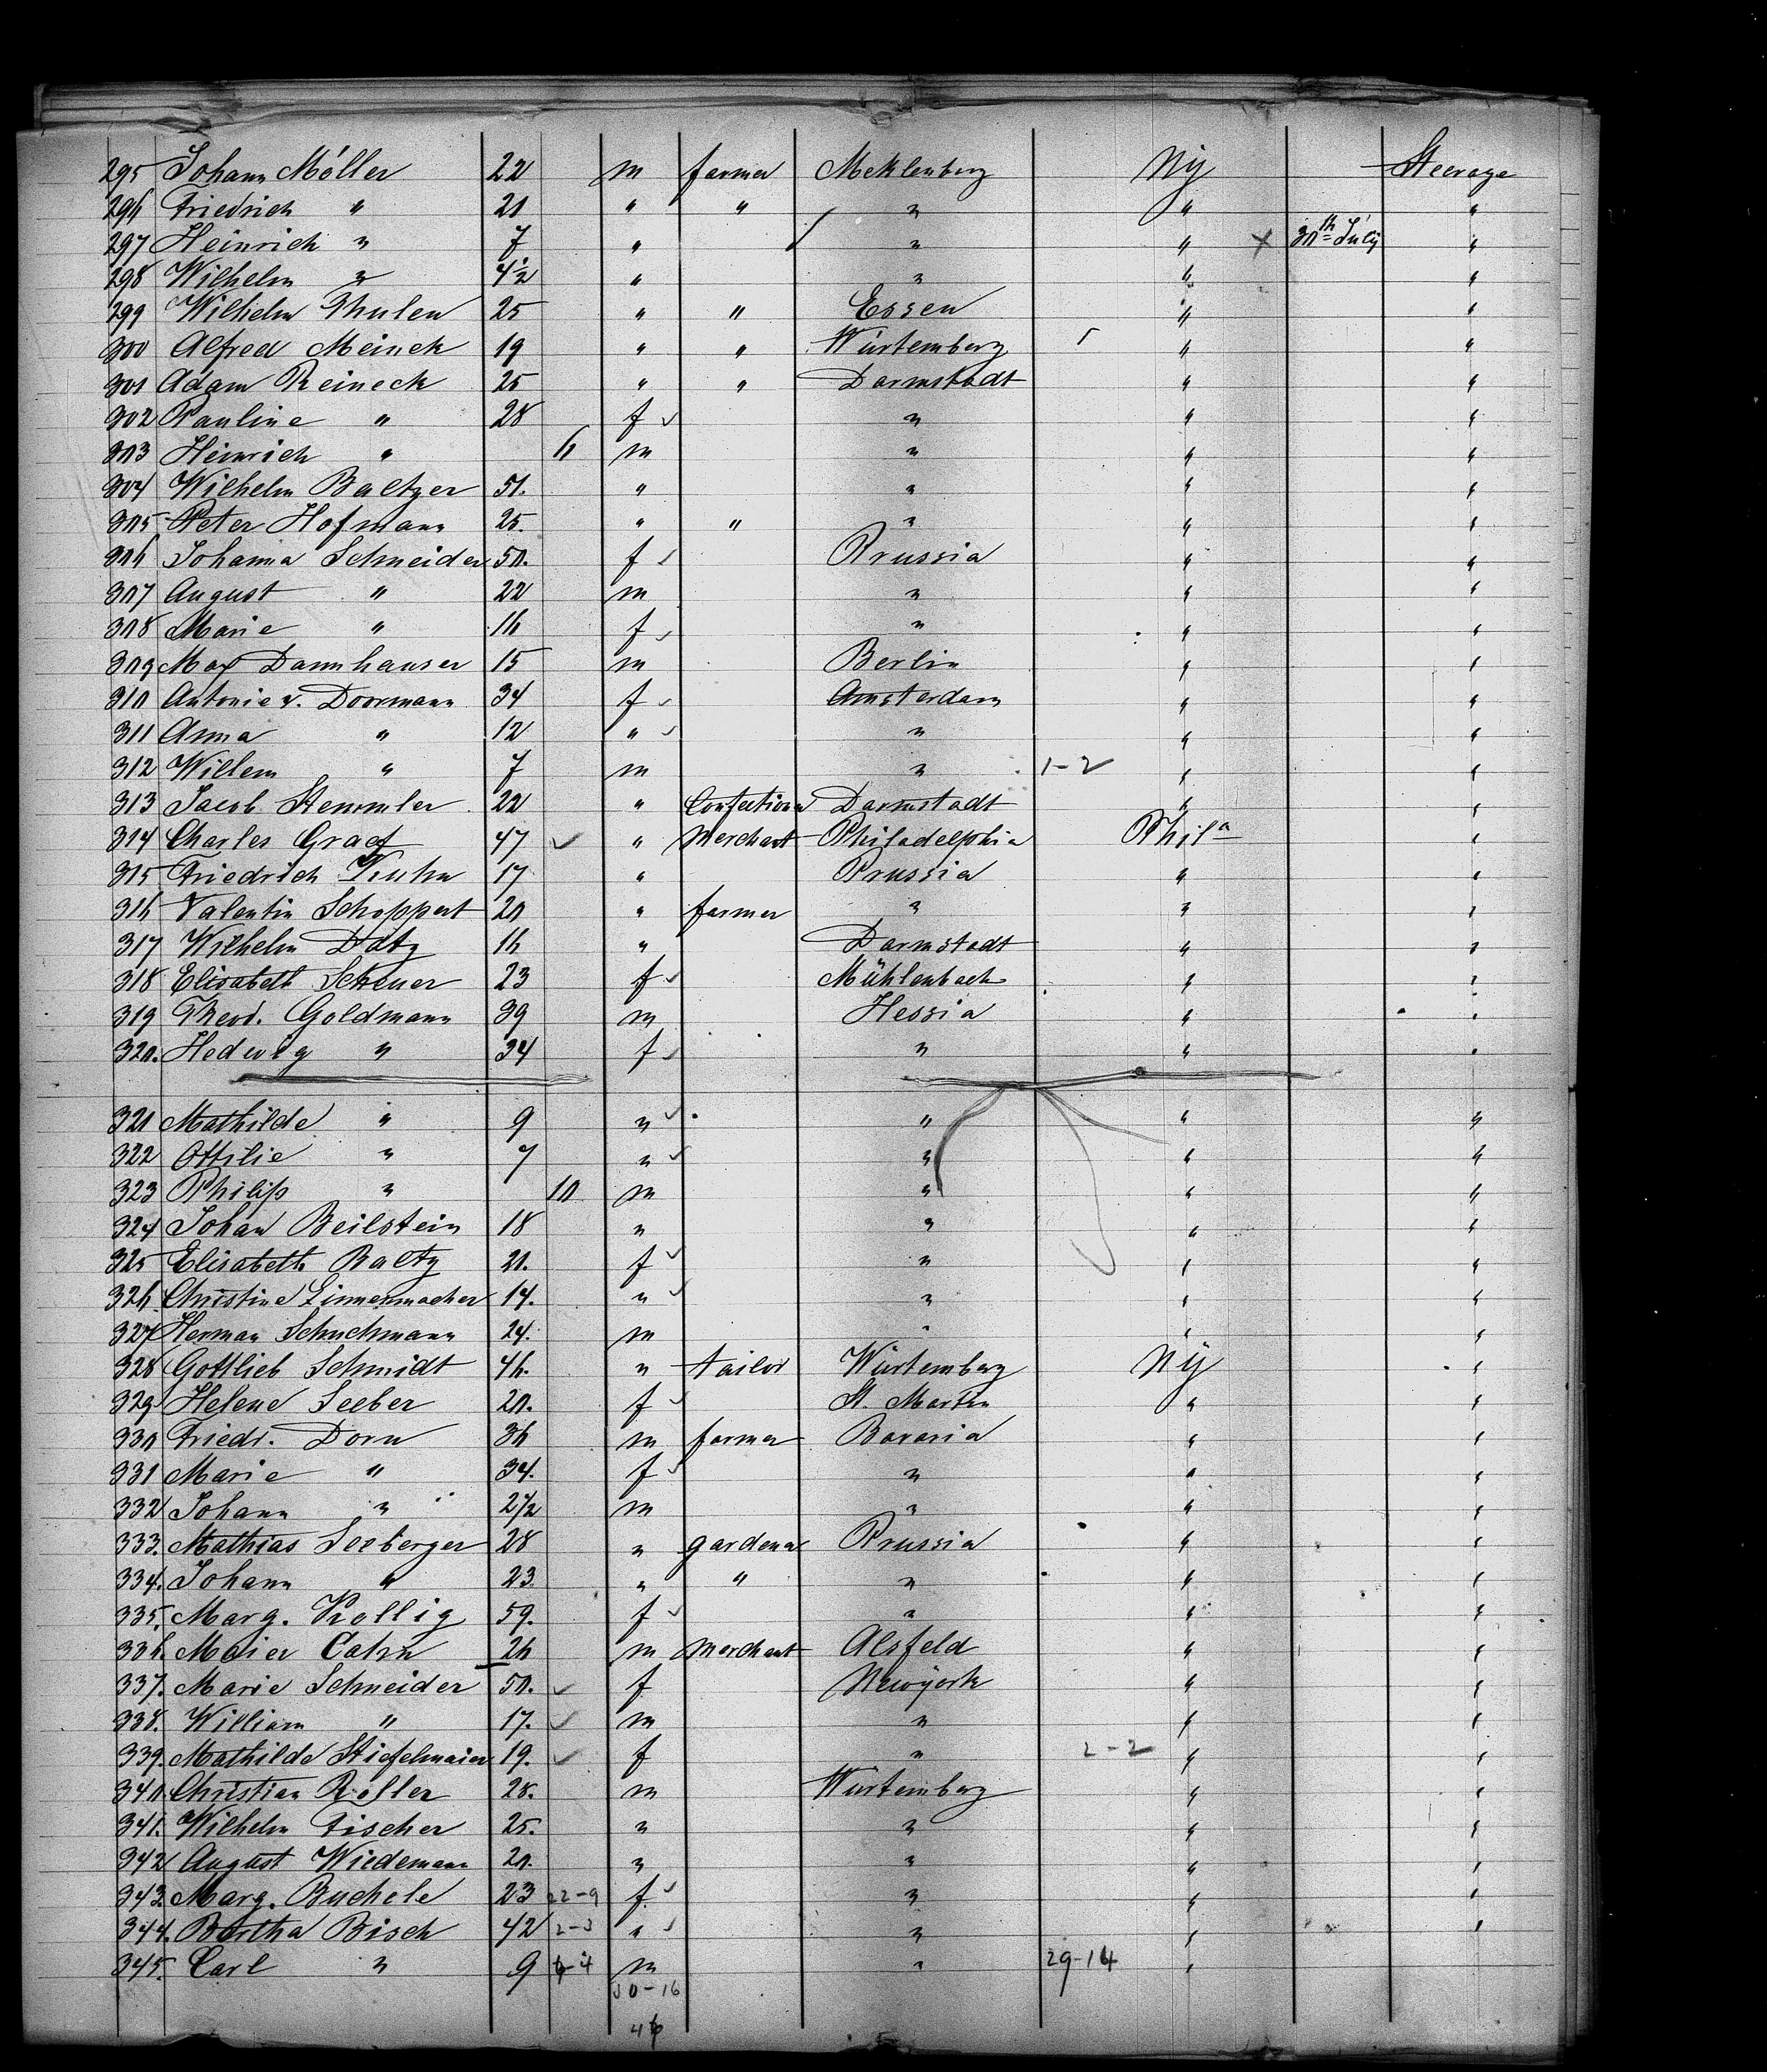 295 Johann Möller 22 m farmer Meklenberg Ny Steerage
296 Friedrich " 21 " " " " "
297 Heinrich " 7 " " " x 30th July "
298 Wilhelm " 4½ " " " "
299 Wilhelm Thulen 25 " " Essen " "
300 Alfred Meinck 19 " " Würtemberg " "
301 Adam Reineck 25 " " Darmstadt " "
302 Pauline " 28 f " " "
303 Heinrich " 6 m " " "
304 Wilhelm Baltzer 51. " " " "
305 Peter Hofmann 25. " " " " "
306 Johanna Schneider 50. f Prussia " "
307 August " 22 m " " "
308 Marie " 16 f " " "
309 Max Dannhauser 15 m Berlin " "
310 Antonie v. Doormann 34 f Amsterdam " "
311 Anna " 12 " " " "
312 Willem " 7 m " 1-2 " "
313 Jacob Stemmler 22 " Confectioner Darmstadt " "
314 Charles Graef 47 " Merchant Philadelphia Phila "
315 Friedrich Kuhn 17 " Prussia " "
316 Valentin Schoppert 20 " farmer " " "
317 Wilhelm Datz 16 " Darmstadt " "
318 Elisabeth Scheuer 23 f Mühlenbach " "
319 Theod. Goldmann 39 m Hessia " "
320. Hedwig " 34 f " " "
321 Mathilde " 9 " " " "
322 Ottilie " 7 " " " "
323 Philip " 10 m " " "
324 Johan Beilstein 18 " " " "
325 Elisabeth Baltz 21. f " " "
326 Christine Zimmermacher 14. " " " "
327 Herman Schuchmann 24. m " " "
328 Gottlieb Schmidt 46. " tailor Würtemberg Ny "
329 Helene Seeber 20. f St. Martin " "
330 Friedr. Dorn 36 m farmer Bavaria " "
331 Marie " 34. f " " "
332 Johann " 2½ m " " "
333. Mathias Seeberger 28 " gardener Prussia " "
334. Johann " 23 " " " " "
335. Marg. Kellig 59. f " " "
336. Meier Cahn 26 m Merchant Alsfeld " "
337. Marie Schneider 50. f Newyork " "
338. William " 17. m " " "
339. Mathilde Stiefelmaier 19. f " 2-2 " "
340. Christian Roller 28. m Würtemberg " "
341. Wilhelm Fischer 25. " " " "
342 August Wiedemann 20. " " " "
343. Marg. Buchele 23 22-9 f " " "
344. Bertha Bisch 42 2-3 " " " "
345. Carl " 9 4 m " 29-14 "
30-16
46